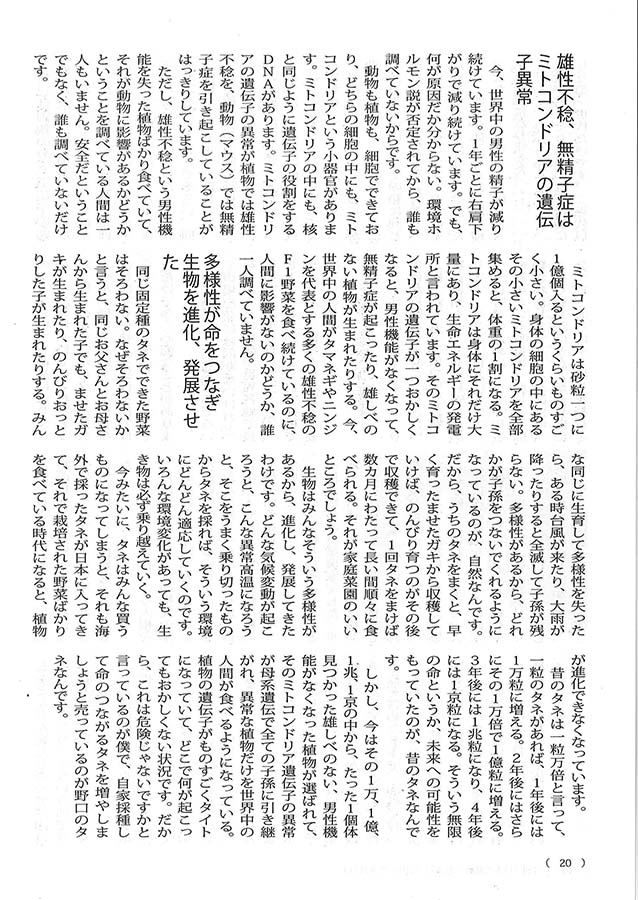 雄性不稔、無精子症は
ミトコンドリアの遺伝
子異常
　今、世界中の男性の精子が減り
続けています。1年ごとに右肩下
がりで減り続けています。でも、
何が原因だか分からない。環境ホ
ルモン説が否定されてから、誰も
調べていないからです。
　動物も植物も、細胞でできてお
り、どちらの細胞の中にも、ミト
コンドリアという小器官がありま
す。ミトコンドリアの中にも、核
と同じように遺伝子の役割をする
DNAがあります。ミトコンドリ
アの遺伝子の異常が植物では雄性
不稔を、動物（マウス）では無精
子症を引き起こしていることが
はっきりしています。
　ただし、雄性不稔という男性機
能を失った植物ばかり食べていて、
それが動物に影響があるかどうか
ということを調べている人間は一
人もいません。安全だということ
でもなく、誰も調べていないだけ
です。
　ミトコンドリアは砂粒一つに
1億個入るというくらいものすご
く小さい。身体の細胞の中にある
その小さいミトコンドリアを全部
集めると、体重の1割になる。ミ
トコンドリアは身体にそれだけ大
量にあり、生命エネルギーの発電
所と言われています。そのミトコ
ンドリアの遺伝子が一つおかしく
なると、男性機能がなくなって、
無精子症が起こったり、雄しべの
ない植物が生まれたりする。今、
世界中の人間がタマネギやニンジ
ンを代表とする多くの雄性不稔の
F1野菜を食べ続けているのに、
人間に影響がないのかどうか、誰
一人調べていません。
多様性が命をつなぎ
生物を進化、発展させ
た
　同じ固定種のタネでできた野菜
はそろわない。なぜそろわないか
と言うと、同じお父さんとお母さ
んから生まれた子でも、ませたガ
キが生まれたり、のんびりおっと
りした子が生まれたりする。みん
な同じに生育して多様性を失った
ら、ある時台風が来たり、大雨が
降ったりすると全滅して子孫が残
らない。多様性があるから、どれ
かが子孫をつないでくれるように
なっているのが、自然なんです。
だから、うちのタネをまくと、早
く育ったませたガキから収穫して
いけば、のんびり育つのがその後
で収穫できて、1回タネをまけば
数カ月にわたって長い間順々に食
べられる。それが家庭菜園のいい
ところでしょう。
　生物はみんなそういう多様性が
あるから、進化し、発展してきた
わけです。どんな気候変動が起こ
ろうと、こんな異常高温になろう
と、そこをうまく乗り切ったもの
からタネを採れば、そういう環境
にどんどん適応していくのです。
いろんな環境変化があっても、生
き物は必ず乗り越えていく。
　今みたいに、タネはみんな買う
ものになってしまうと、それも海
外で採ったタネが日本に入ってき
て、それで栽培された野菜ばかり
を食べている時代になると、植物
が進化できなくなっています。
　昔のタネは一粒万倍と言って、
一粒のタネがあれば、1年後には
1万粒に増える。2年後にはさら
にその1万倍で1億粒に増える。
3年後には1兆粒になり、4年後
には1京粒になる。そういう無限
の命というか、未来への可能性を
もっていたのが、昔のタネなんで
す。
　しかし、今はその1万、1億、
1兆、1京の中から、たった1個体
見つかった雄しべのない、男性機
能がなくなった植物が選ばれて、
そのミトコンドリア遺伝子の異常
が母系遺伝で全ての子孫に引き継
がれ、異常な植物だけを世界中の
人間が食べるようになっている。
植物の遺伝子がものすごくタイト
になっていて、どこで何が起こっ
てもおかしくない状況です。だか
ら、これは危険じゃないですかと
言っているのが僕で、自家採種し
て命のつながるタネを増やしま
しょうと売っているのが野口のタ
ネなんです。
( 20 )